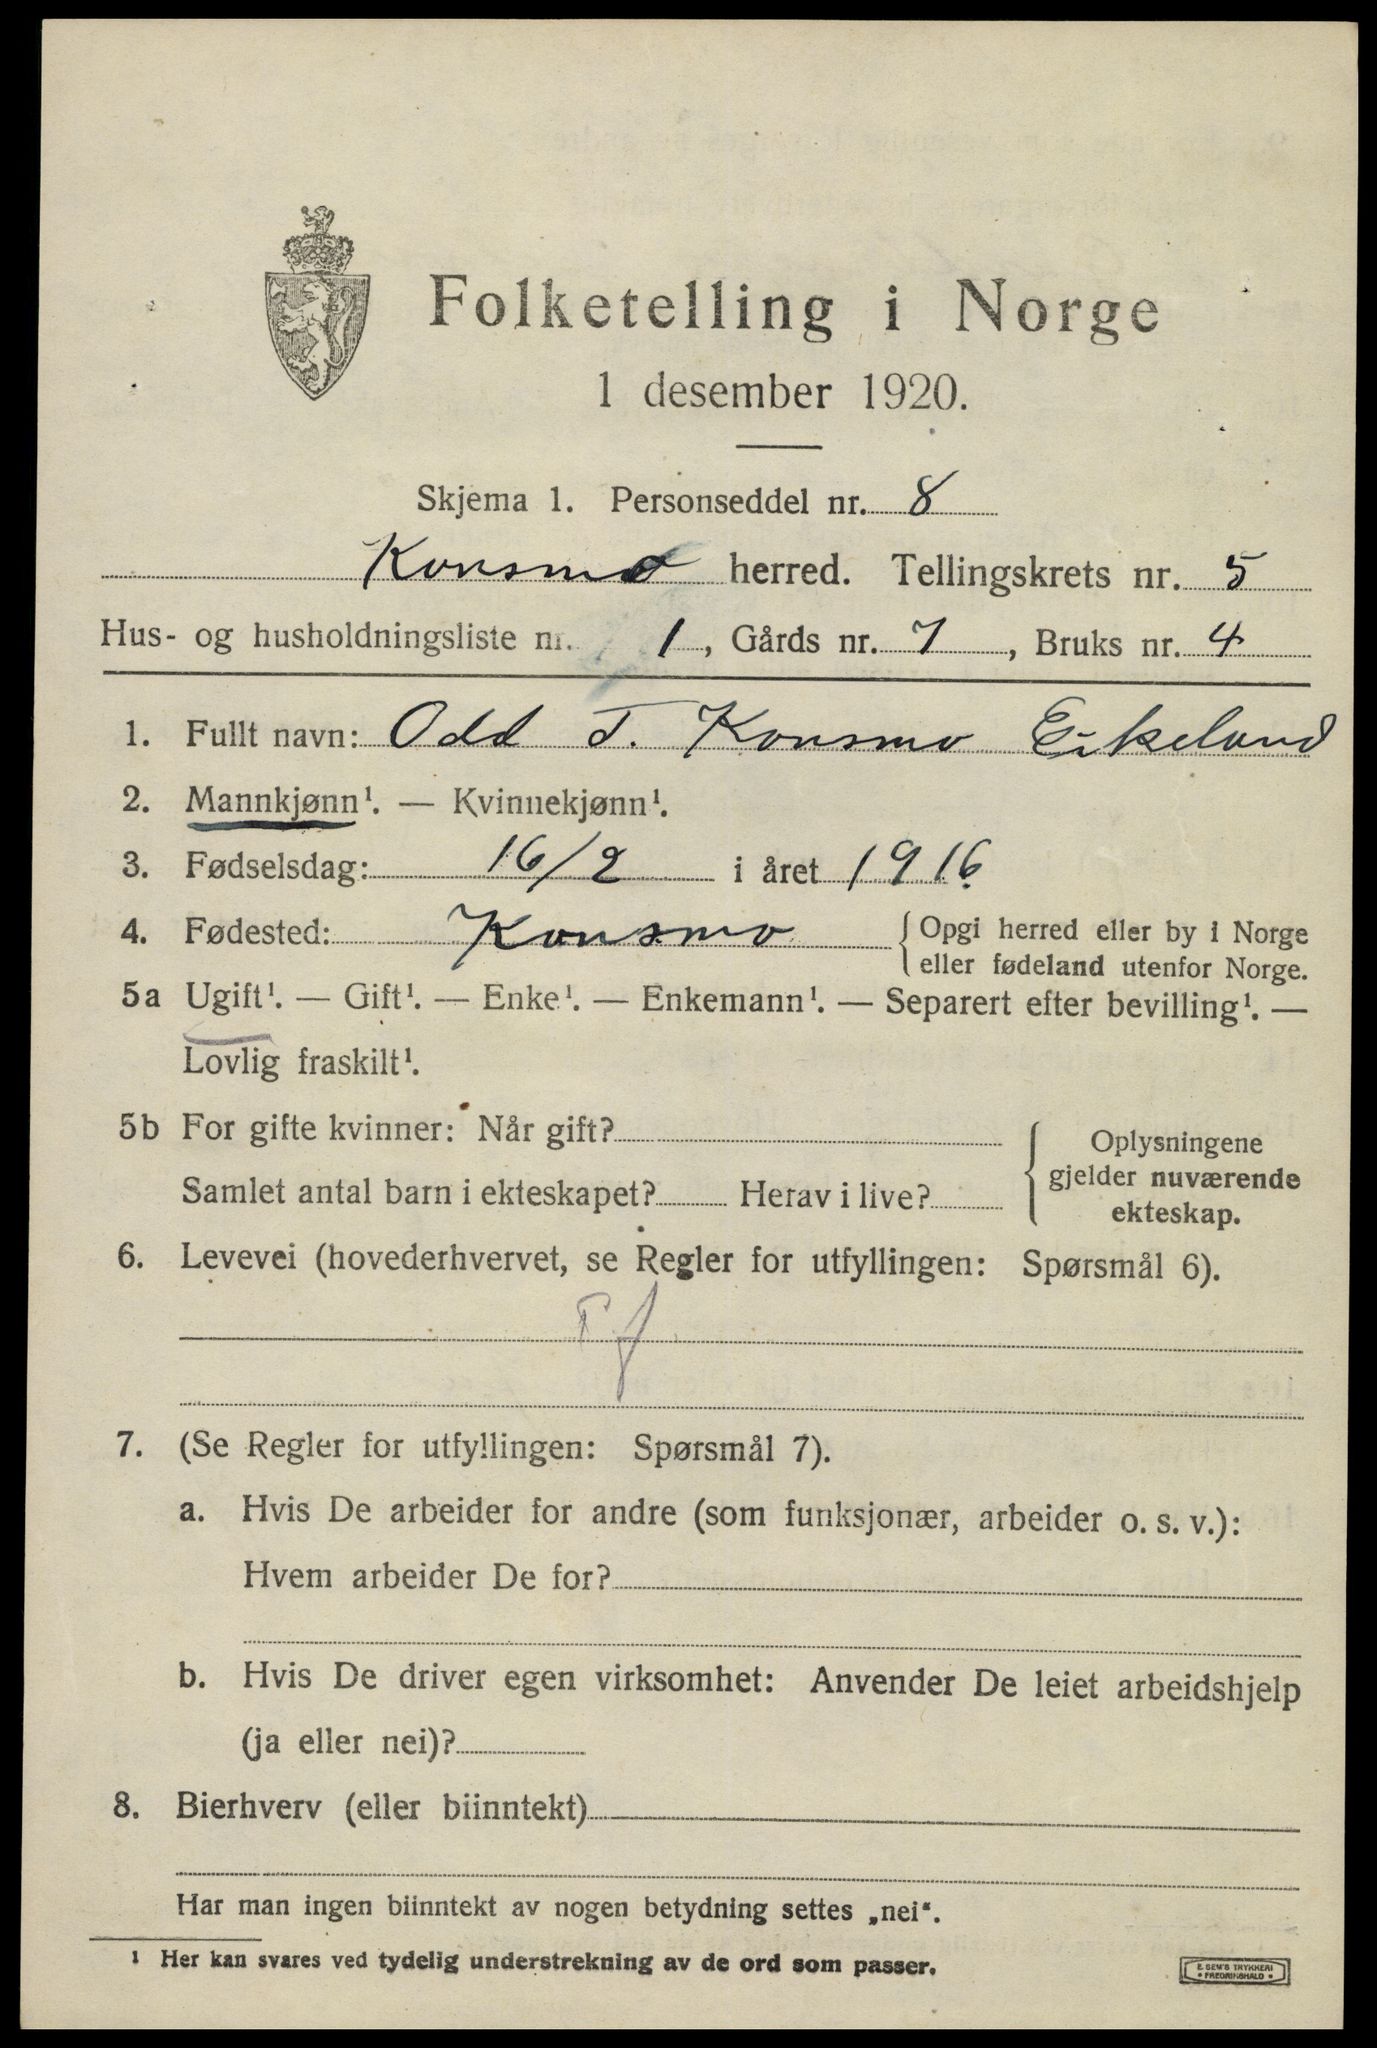 Folketelling i Norge
1 desember 1920.
Skjema 1. Personseddel nr. 8
Konsmo herred. Tellingskrets nr. 5
Hus- og husholdningsliste nr. 1, Gårds nr. 7, Bruks nr. 4
1. Fullt navn: Odd T. Konsmo Eikeland
2. Mannkjønn¹. — Kvinnekjønn¹.
3. Fødselsdag: 16/2 i året 1916
4. Fødested: Konsmo { Opgi herred eller by i Norge
eller fødeland utenfor Norge.
5a Ugift¹. — Gift¹. — Enke¹. — Enkemann¹. — Separert efter bevilling¹. —
Lovlig fraskilt¹.
5b For gifte kvinner: Når gift?
Samlet antal barn i ekteskapet? Herav i live?
Oplysningene
gjelder nuværende
ekteskap.
6. Levevei (hovederhvervet, se Regler for utfyllingen: Spørsmål 6).
7. (Se Regler for utfyllingen: Spørsmål 7).
a. Hvis De arbeider for andre (som funksjonær, arbeider o. s. v.):
Hvem arbeider De for?
b. Hvis De driver egen virksomhet: Anvender De leiet arbeidshjelp
(ja eller nei)?
8. Bierhverv (eller biinntekt)
Har man ingen biinntekt av nogen betydning settes „nei“.
¹ Her kan svares ved tydelig understrekning av de ord som passer.
E. SEM'S TRYKKERI
• FREDRIKSHALD •